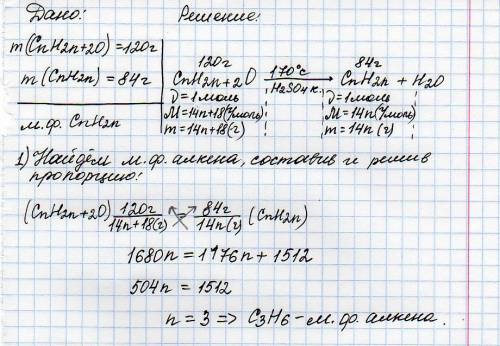 Дано:
m(CnH2n+2O)=120г
m(CnH2n)=84г
м.ф. CnH2n
Решение:
120г 84г
CnH2n+2O 170°C CnH2n + H2O
H2SO4 к.
ν=1моль ν=1моль
M=14n+18(г/моль) M=14n(г/моль)
m=14n+18(г) m=14n(г)
1) Найдём м.ф. алкена, составив и решив
пропорцию:
(CnH2n+2O) 120г/14n+18(г) = 84г/14n(г) (CnH2n)
1680n = 1176n + 1512
504n = 1512
n = 3 => C3H6 – м.ф. алкена.